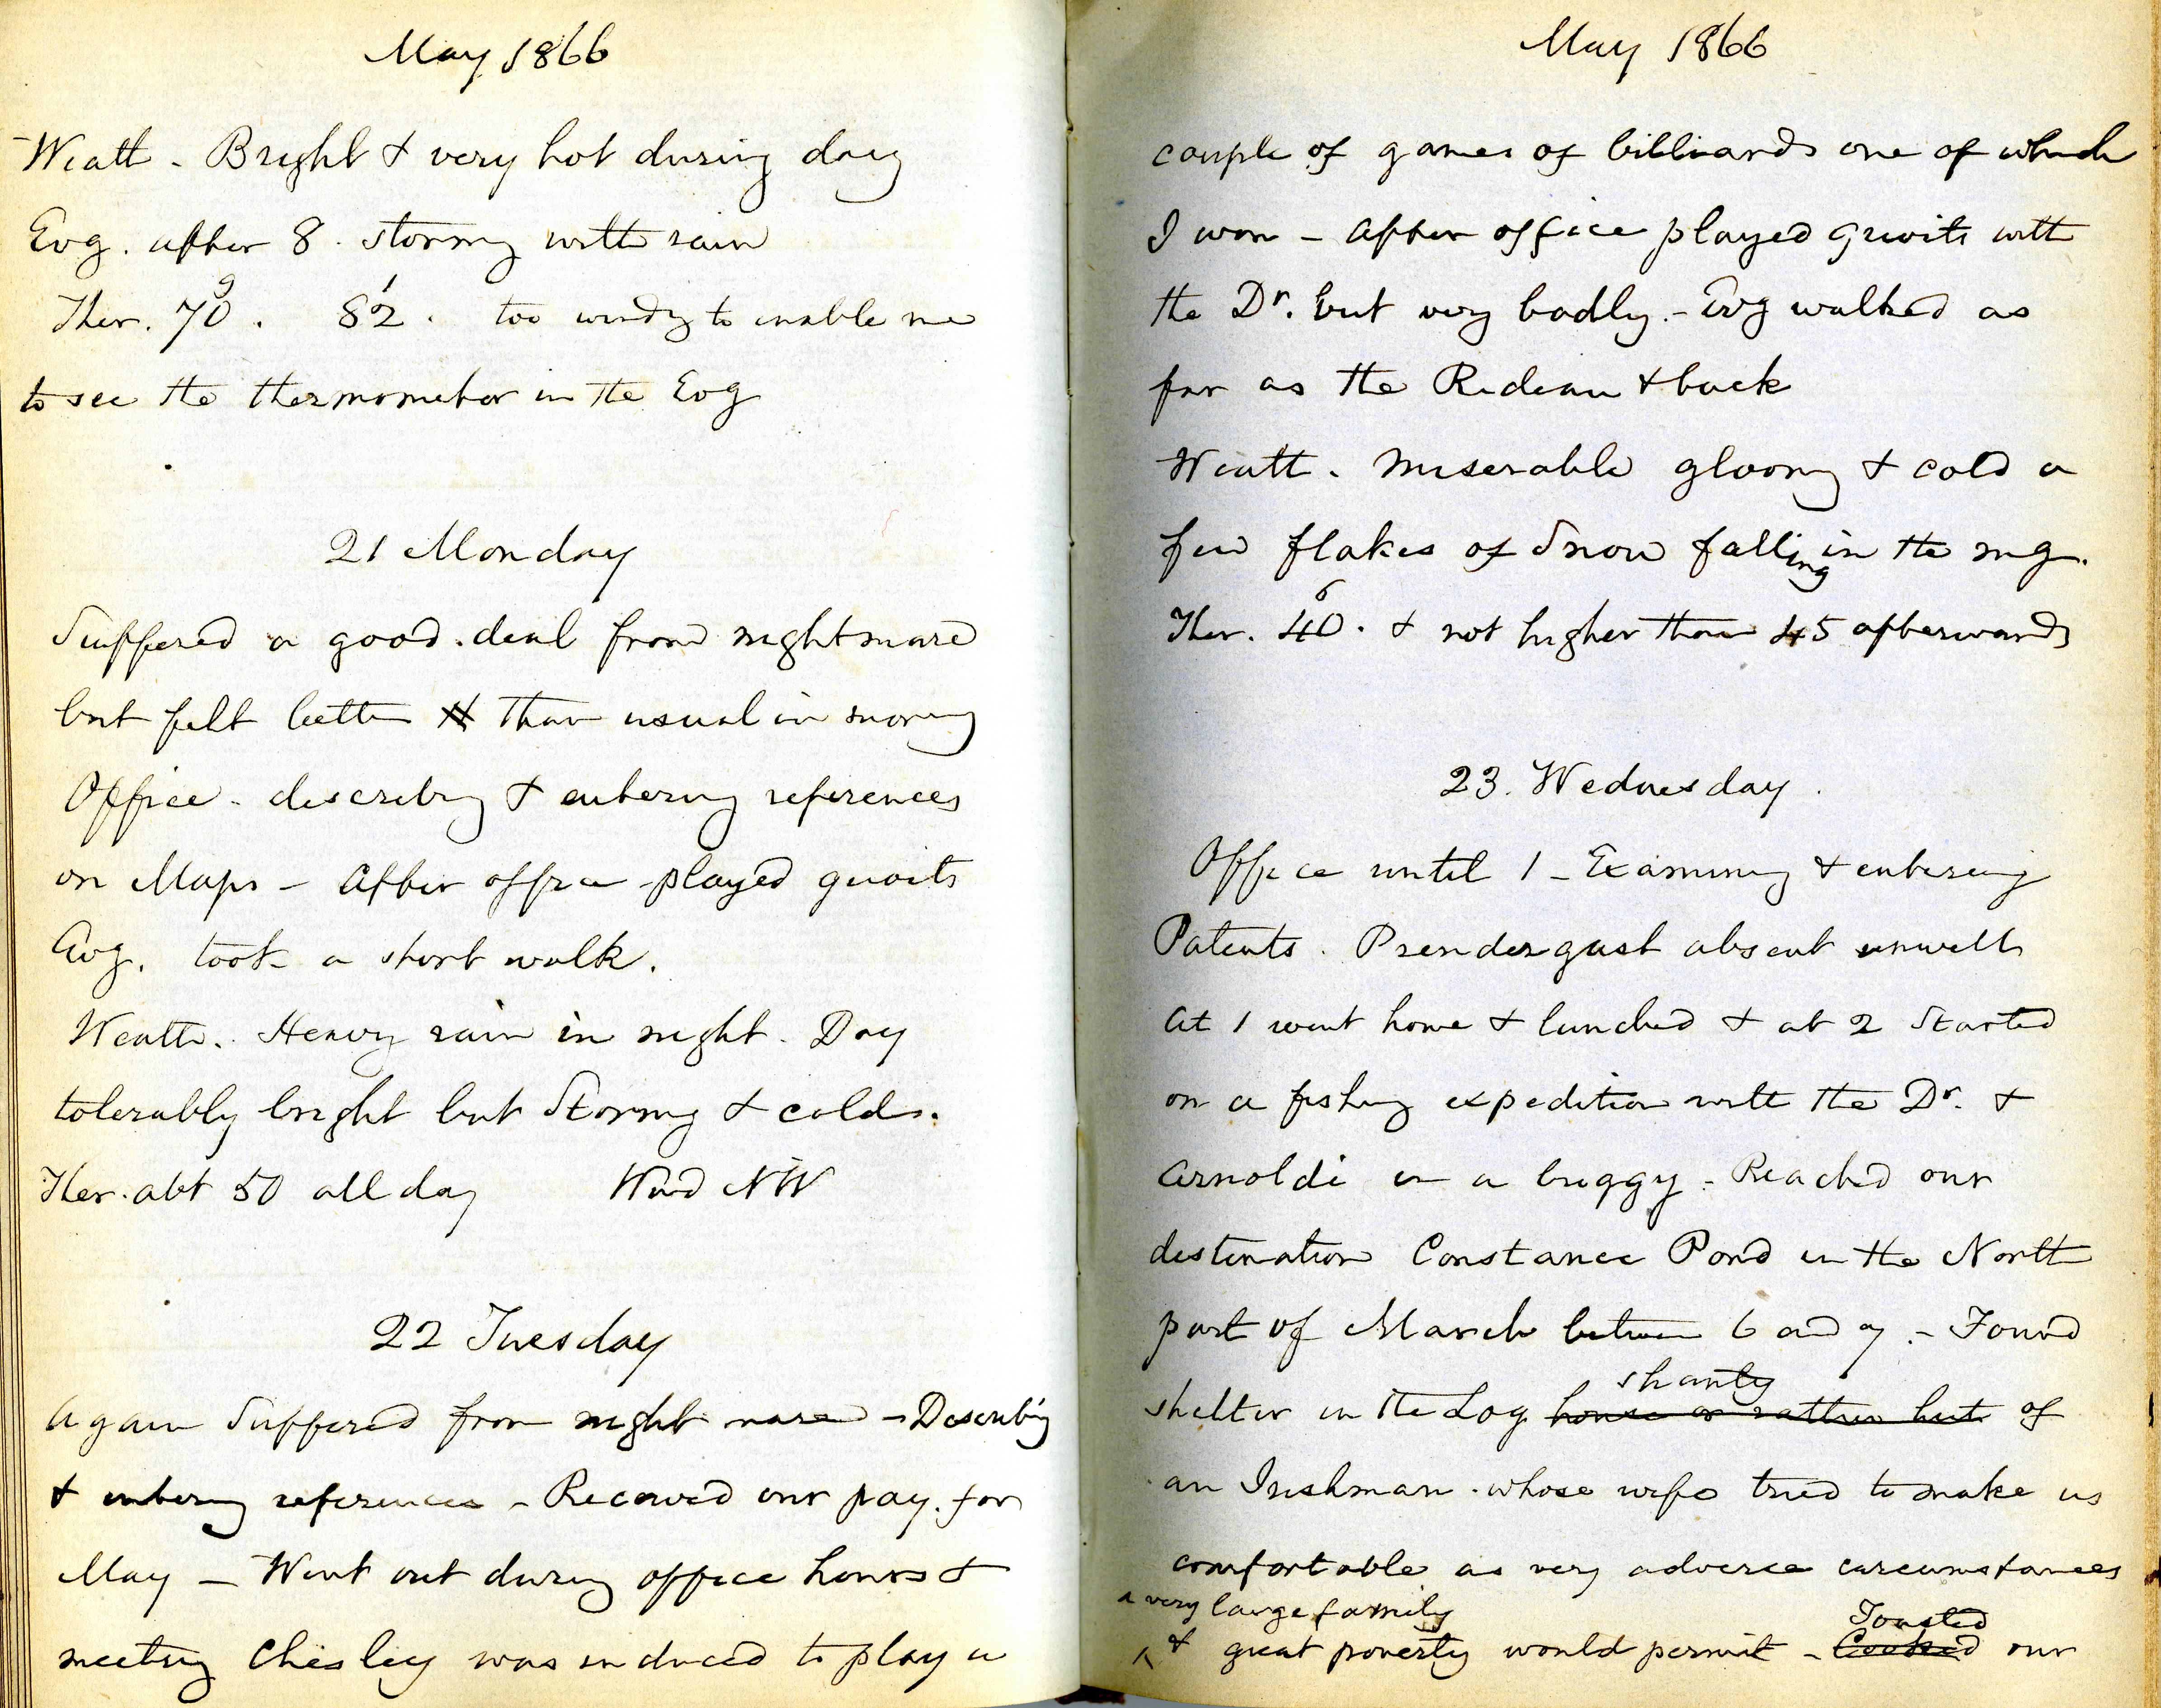 May 1866
Weath - Bright & very hot during day
Evg. after 8. stormy with rain
Ther. 70⁹. 82¹. too windy to enable me
to see the thermometer in the Evg
21 Monday
Suffered a good deal from nightmare
but felt better than usual in morng
Office - describg & entering references
on Maps - After office played quoits
Evg. took a short walk.
Weath. Heavy rain in night. Day
tolerably bright but Stormy & cold.
Ther. abt 50 all day Wind NW
22 Tuesday
Again Suffered from night mare - Describing
& entering references - Received our pay for
May - Went out during office hours &
meeting Chesley was induced to play a
May 1866
couple of games of billiards one of which
I won - After office played quoits with
the Dr. but very badly. - Evg walked as
far as the Rideau & back
Weath. Miserable gloomy & cold a
few flakes of Snow falling in the mg.
Ther. 40⁶. & not higher than 45 afterwards
23. Wednesday.
Office until 1 - Examining & entering
Patents. Prendergast absent unwell
At 1 went home & lunched & at 2 Started
on a fishing expedition with the Dr. &
Arnoldi in a buggy - Reached our
destination Constance Pond in the North
part of March between 6 and 7. - Found
shanty
shelter in the Log house or rather hut of
an Irishman whose wife tried to make us
comfortable as very adverse circumstances
a very large family
& great poverty would permit - Cooked our
Toasted